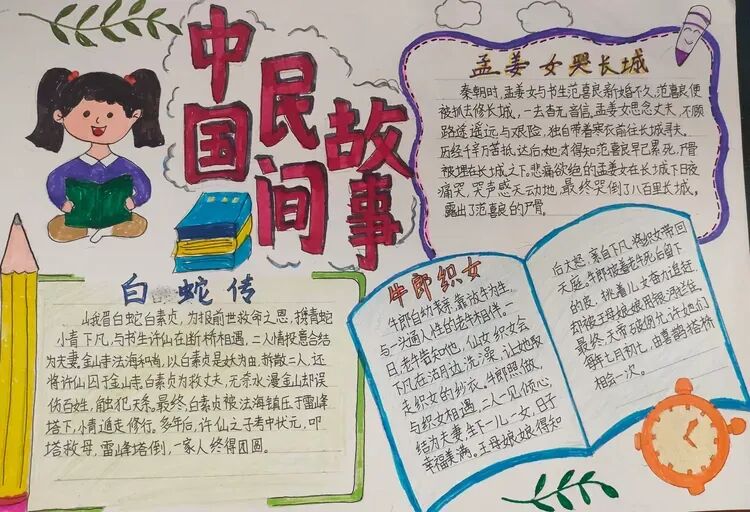 中国
民间
故事
孟姜女哭长城
秦朝时,孟姜女与书生范喜良新婚不久,范喜良便
被抓去修长城,一去杳无音信,孟姜女思念丈夫,不顾
路途遥远与艰险,独自带着寒衣前往长城寻夫。
历经千辛万苦抵达后,她才得知范喜良早已累死,尸骨
被埋在长城之下。悲痛欲绝的孟姜女在长城下日夜
痛哭,哭声感天动地,最终哭倒了八百里长城,
露出了范喜良的尸骨。
白蛇传
峨眉白蛇白素贞,为报前世救命之恩,携青蛇
小青下凡,与书生许仙在断桥相遇,二人情投意合结
为夫妻。金山寺法海和尚,以白素贞是妖为由,拆散二人,还
将许仙囚于金山寺,白素贞为救丈夫,无奈水漫金山却误
伤百姓,触犯天条。最终,白素贞被法海镇压于雷峰
塔下,小青逃走修行。多年后,许仙之子考中状元,叩
塔救母,雷峰塔倒,一家人终得团圆。
牛郎织女
牛郎自幼失亲,靠放牛为生,
与一头通人性的老牛相伴。一
日,老牛告知他,仙女织女会
下凡在河边洗澡,让他取
走织女的纱衣。牛郎照做,
与织女相遇,二人一见倾心
结为夫妻,生下一儿一女,日子
幸福美满。王母娘娘得知
后大怒,亲自下凡将织女带回
天庭。牛郎披着老牛死后留下
的皮,挑着儿女奋力追赶,
却被王母娘娘用银河拦住
最终,天帝允许他们
每年七月初七,由喜鹊搭桥
相会一次。